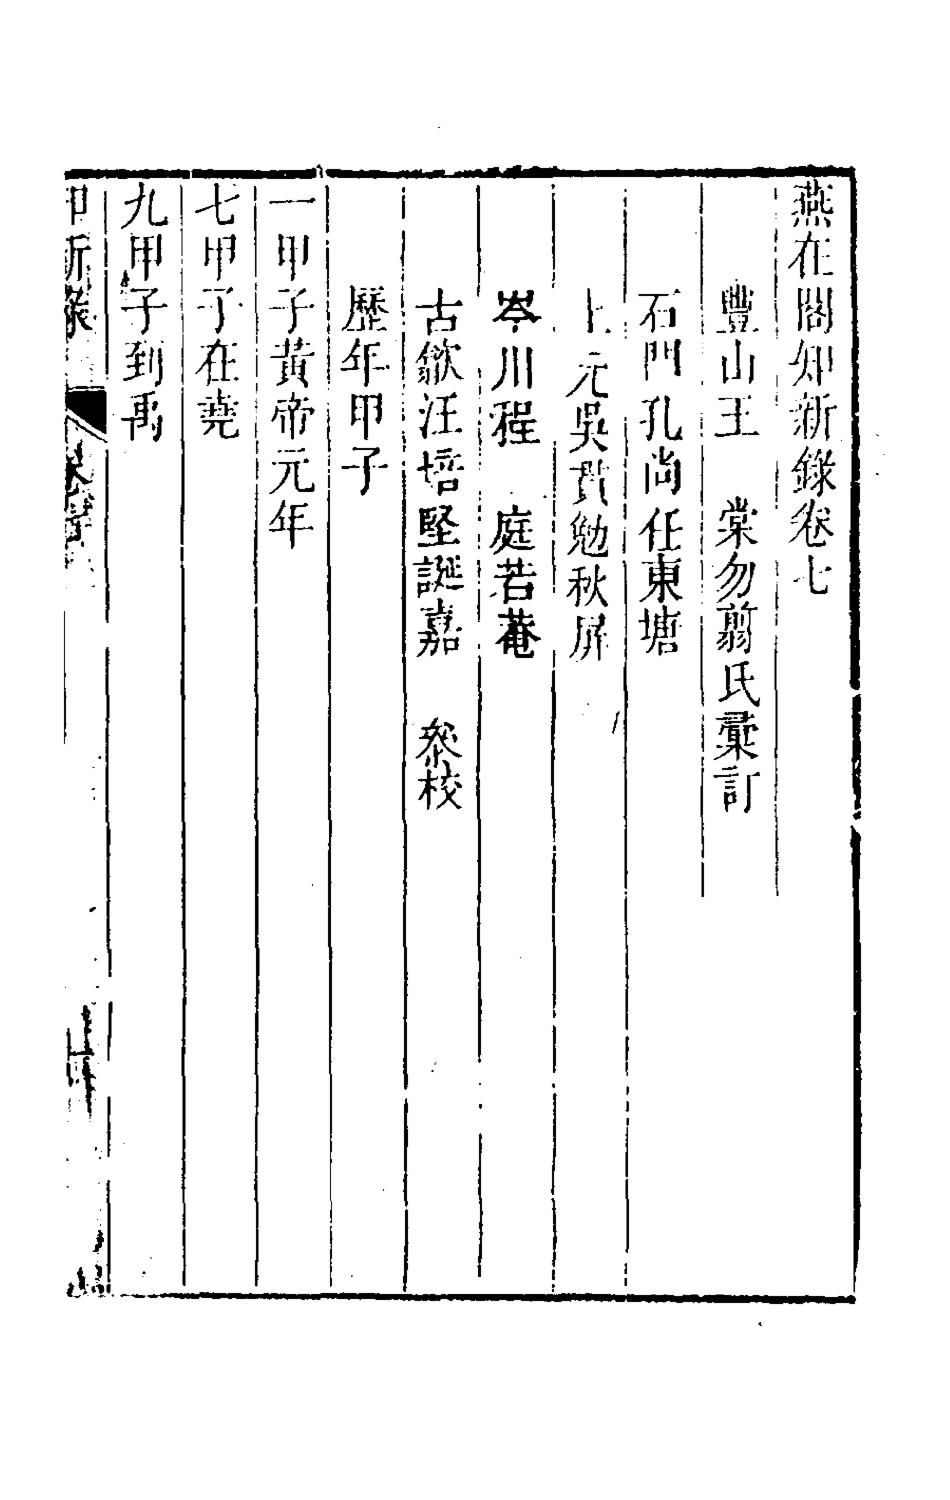 燕在閣知新錄卷七
豐山王　棠勿翦氏彙訂
石門孔尚任東塘
上元吳貫勉秋屏
岑川程　庭若菴
古歙汪培堅誕嘉　叅校
歷年甲子
一甲子黃帝元年
七甲子在堯
九甲子到禹
知新錄